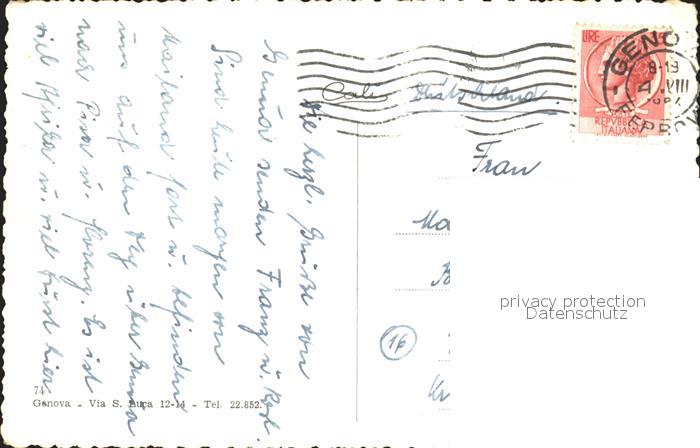 Die herzl. Grüße von
Genua senden Franz u. Rosl.
Sind heute morgen von
Mailand fort u. befinden
uns auf den Weg über Genua
nach Pisa u. Florenz. Es ist
viel Hitze u. viel Durst hier
Deutschland.
Frau
16
74
Genova - Via S. Luca 12-14 - Tel. 22.852.
LIRE
REPVBBLICA
ITALIANA
GENO
8-19
4 .VIII
FERROV
privacy protection
Datenschutz